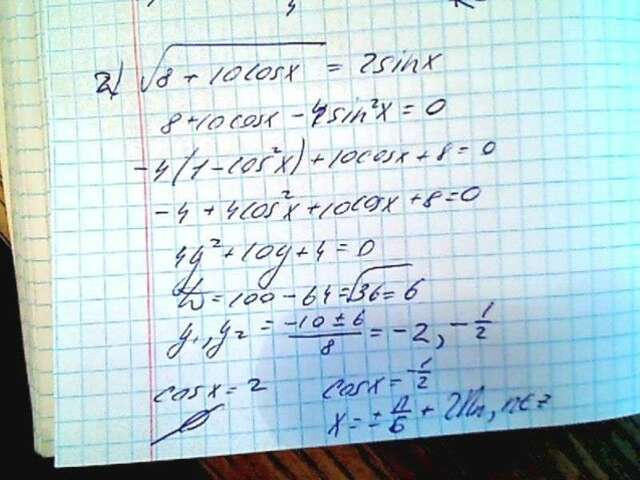 2) √(8 + 10cosx) = 2sinx
8+10cosx - 4sin²x = 0
-4(1-cos²x)+10cosx+8=0
-4+4cos²x+10cosx+8=0
4y²+10y+4=0
D=100-64=√36=6
y₁,y₂ = (-10±6)/8 = -2, -1/2
cosx=2 cosx=-1/2
∅ x=±π/6+2πn, n∈z